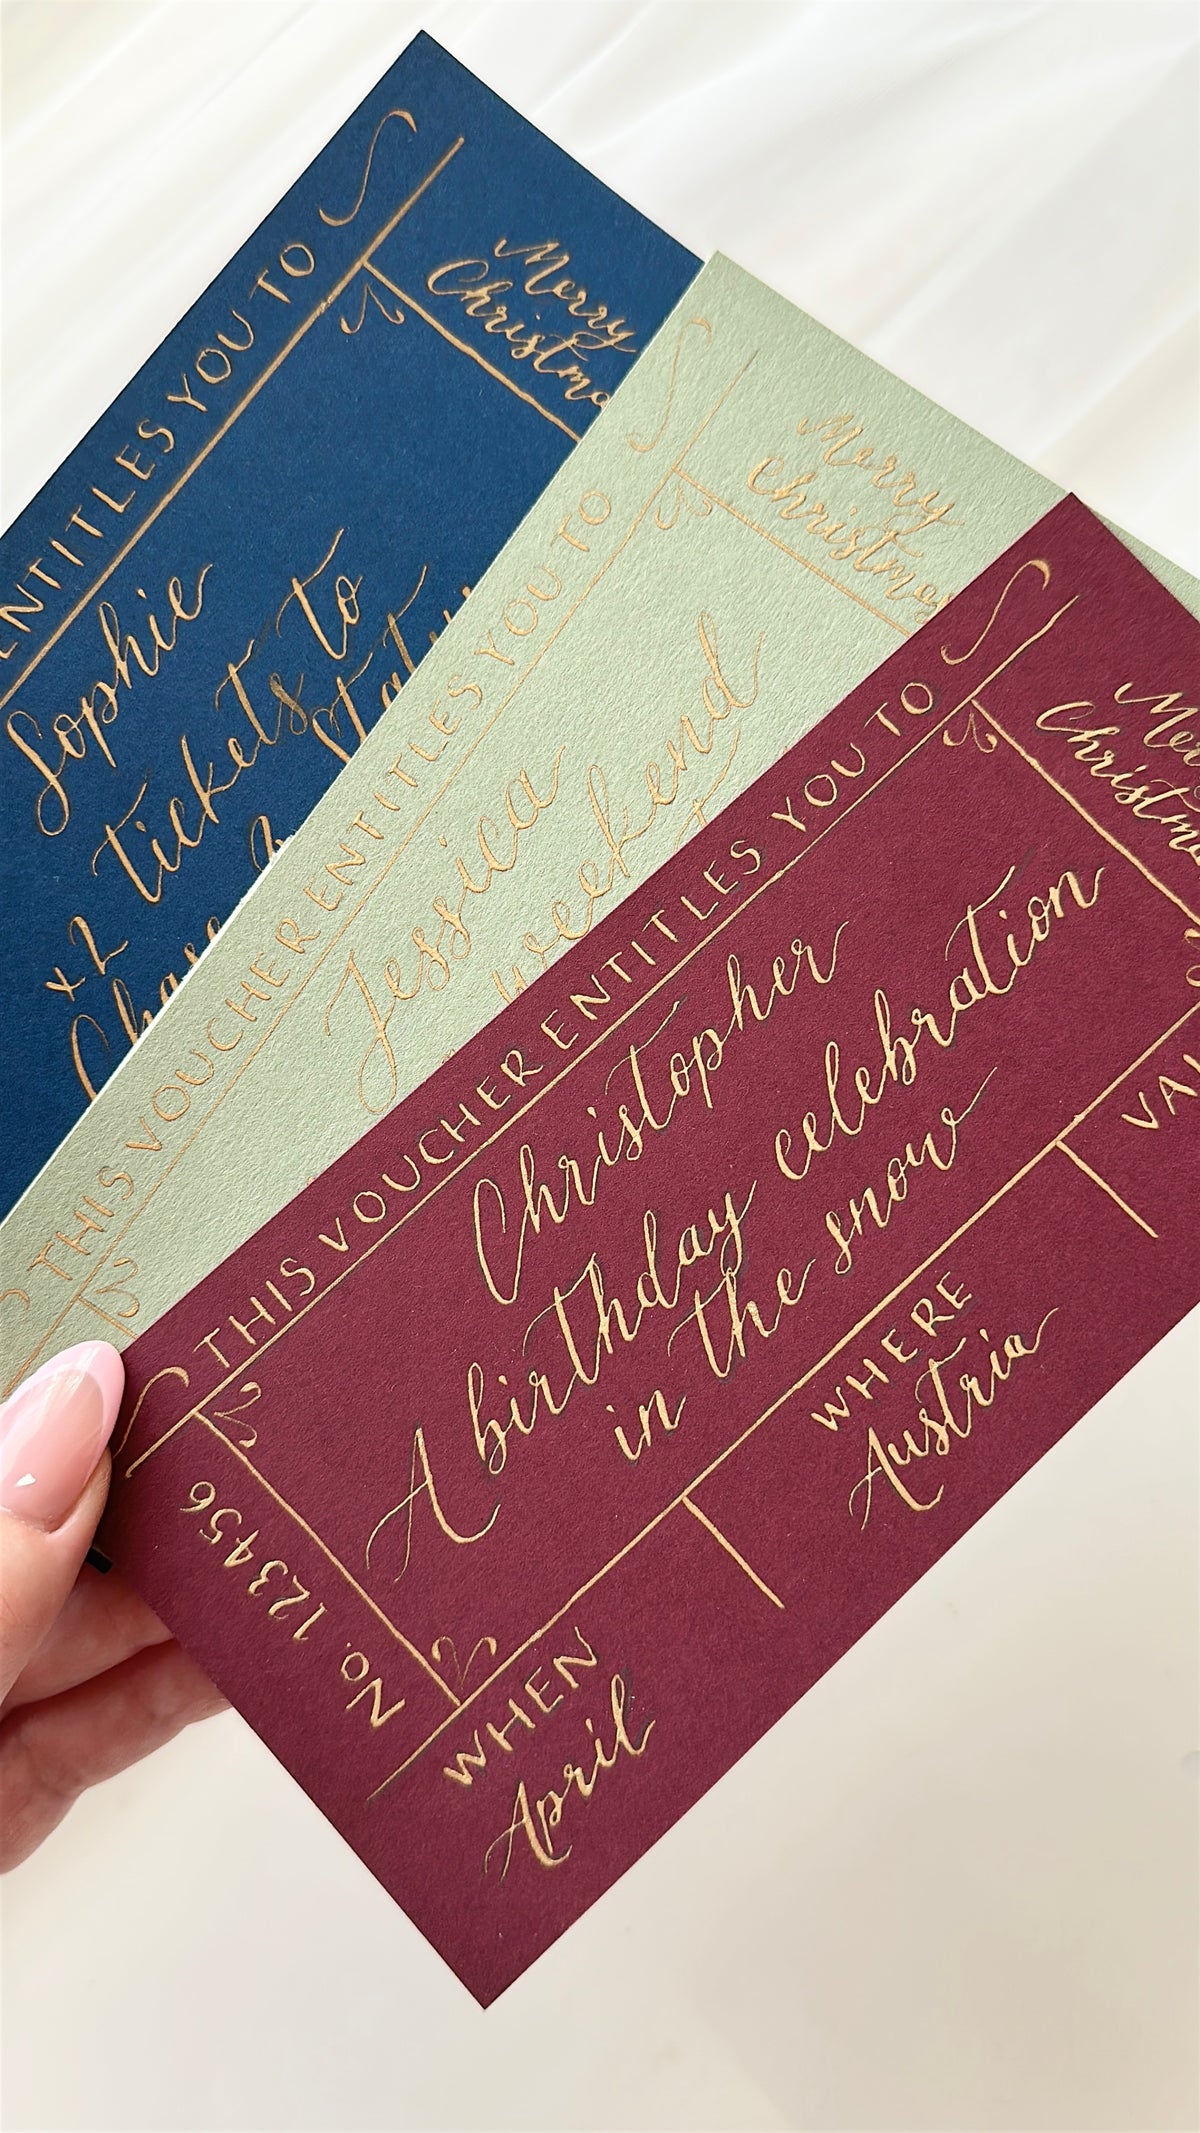 ENTITLES YOU TO
Merry
Sophie
x2 tickets to
THIS VOUCHER ENTITLES YOU TO
Merry
Christmas
Jessica
weekend
THIS VOUCHER ENTITLES YOU TO
Christopher
A birthday celebration
in the snow
No. 123456
WHEN
April
WHERE
Austria